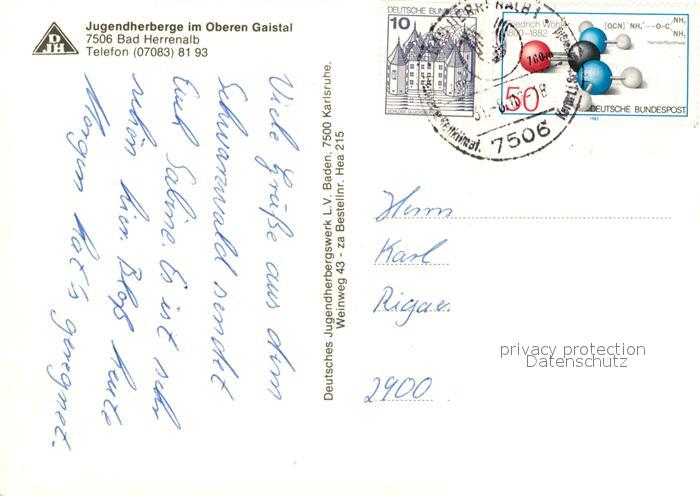 Jugendherberge im Oberen Gaistal
7506 Bad Herrenalb
Telefon (07083) 81 93
DJH
Viele Grüße aus dem
Schwarzwald sendet
Euch Sabine. Es ist sehr
schön hier. Bloß heute
Morgen hat's geregnet.
Deutsches Jugendherbergswerk L.V. Baden, 7500 Karlsruhe,
Weinweg 43 - za Bestellnr. Hea 215
DEUTSCHE BUNDESPOST
10
Friedrich Wöhler
1800-1882
[O,CN]⁻ NH₄⁺ → O=C
NH₂
NH₂
Harnstoffsynthese
50
DEUTSCHE BUNDESPOST
1982
7506
Herrn
Karl
2900
privacy protection
Datenschutz